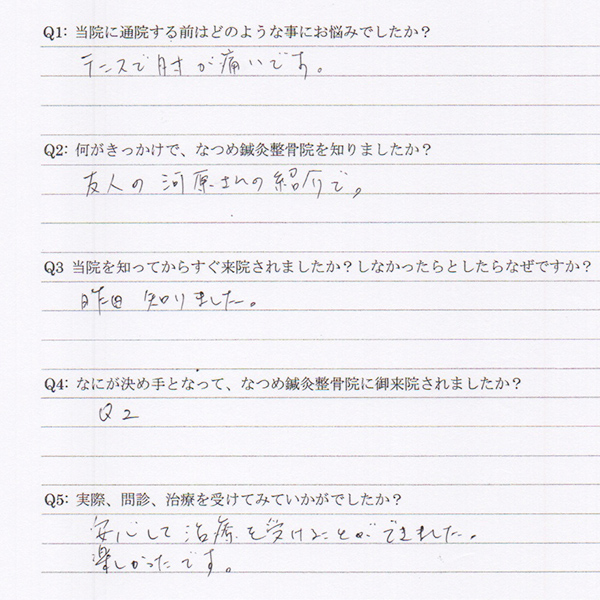 Q1: 当院に通院する前はどのような事にお悩みでしたか？
テニスで肘が痛いです。
Q2: 何がきっかけで、なつめ鍼灸整骨院を知りましたか？
友人の河原さんの紹介で。
Q3 当院を知ってからすぐ来院されましたか？しなかったらとしたらなぜですか？
昨日 知りました。
Q4: なにが決め手となって、なつめ鍼灸整骨院に御来院されましたか？
Q2
Q5: 実際、問診、治療を受けてみていかがでしたか？
安心して治療を受けることができました。
楽しかったです。